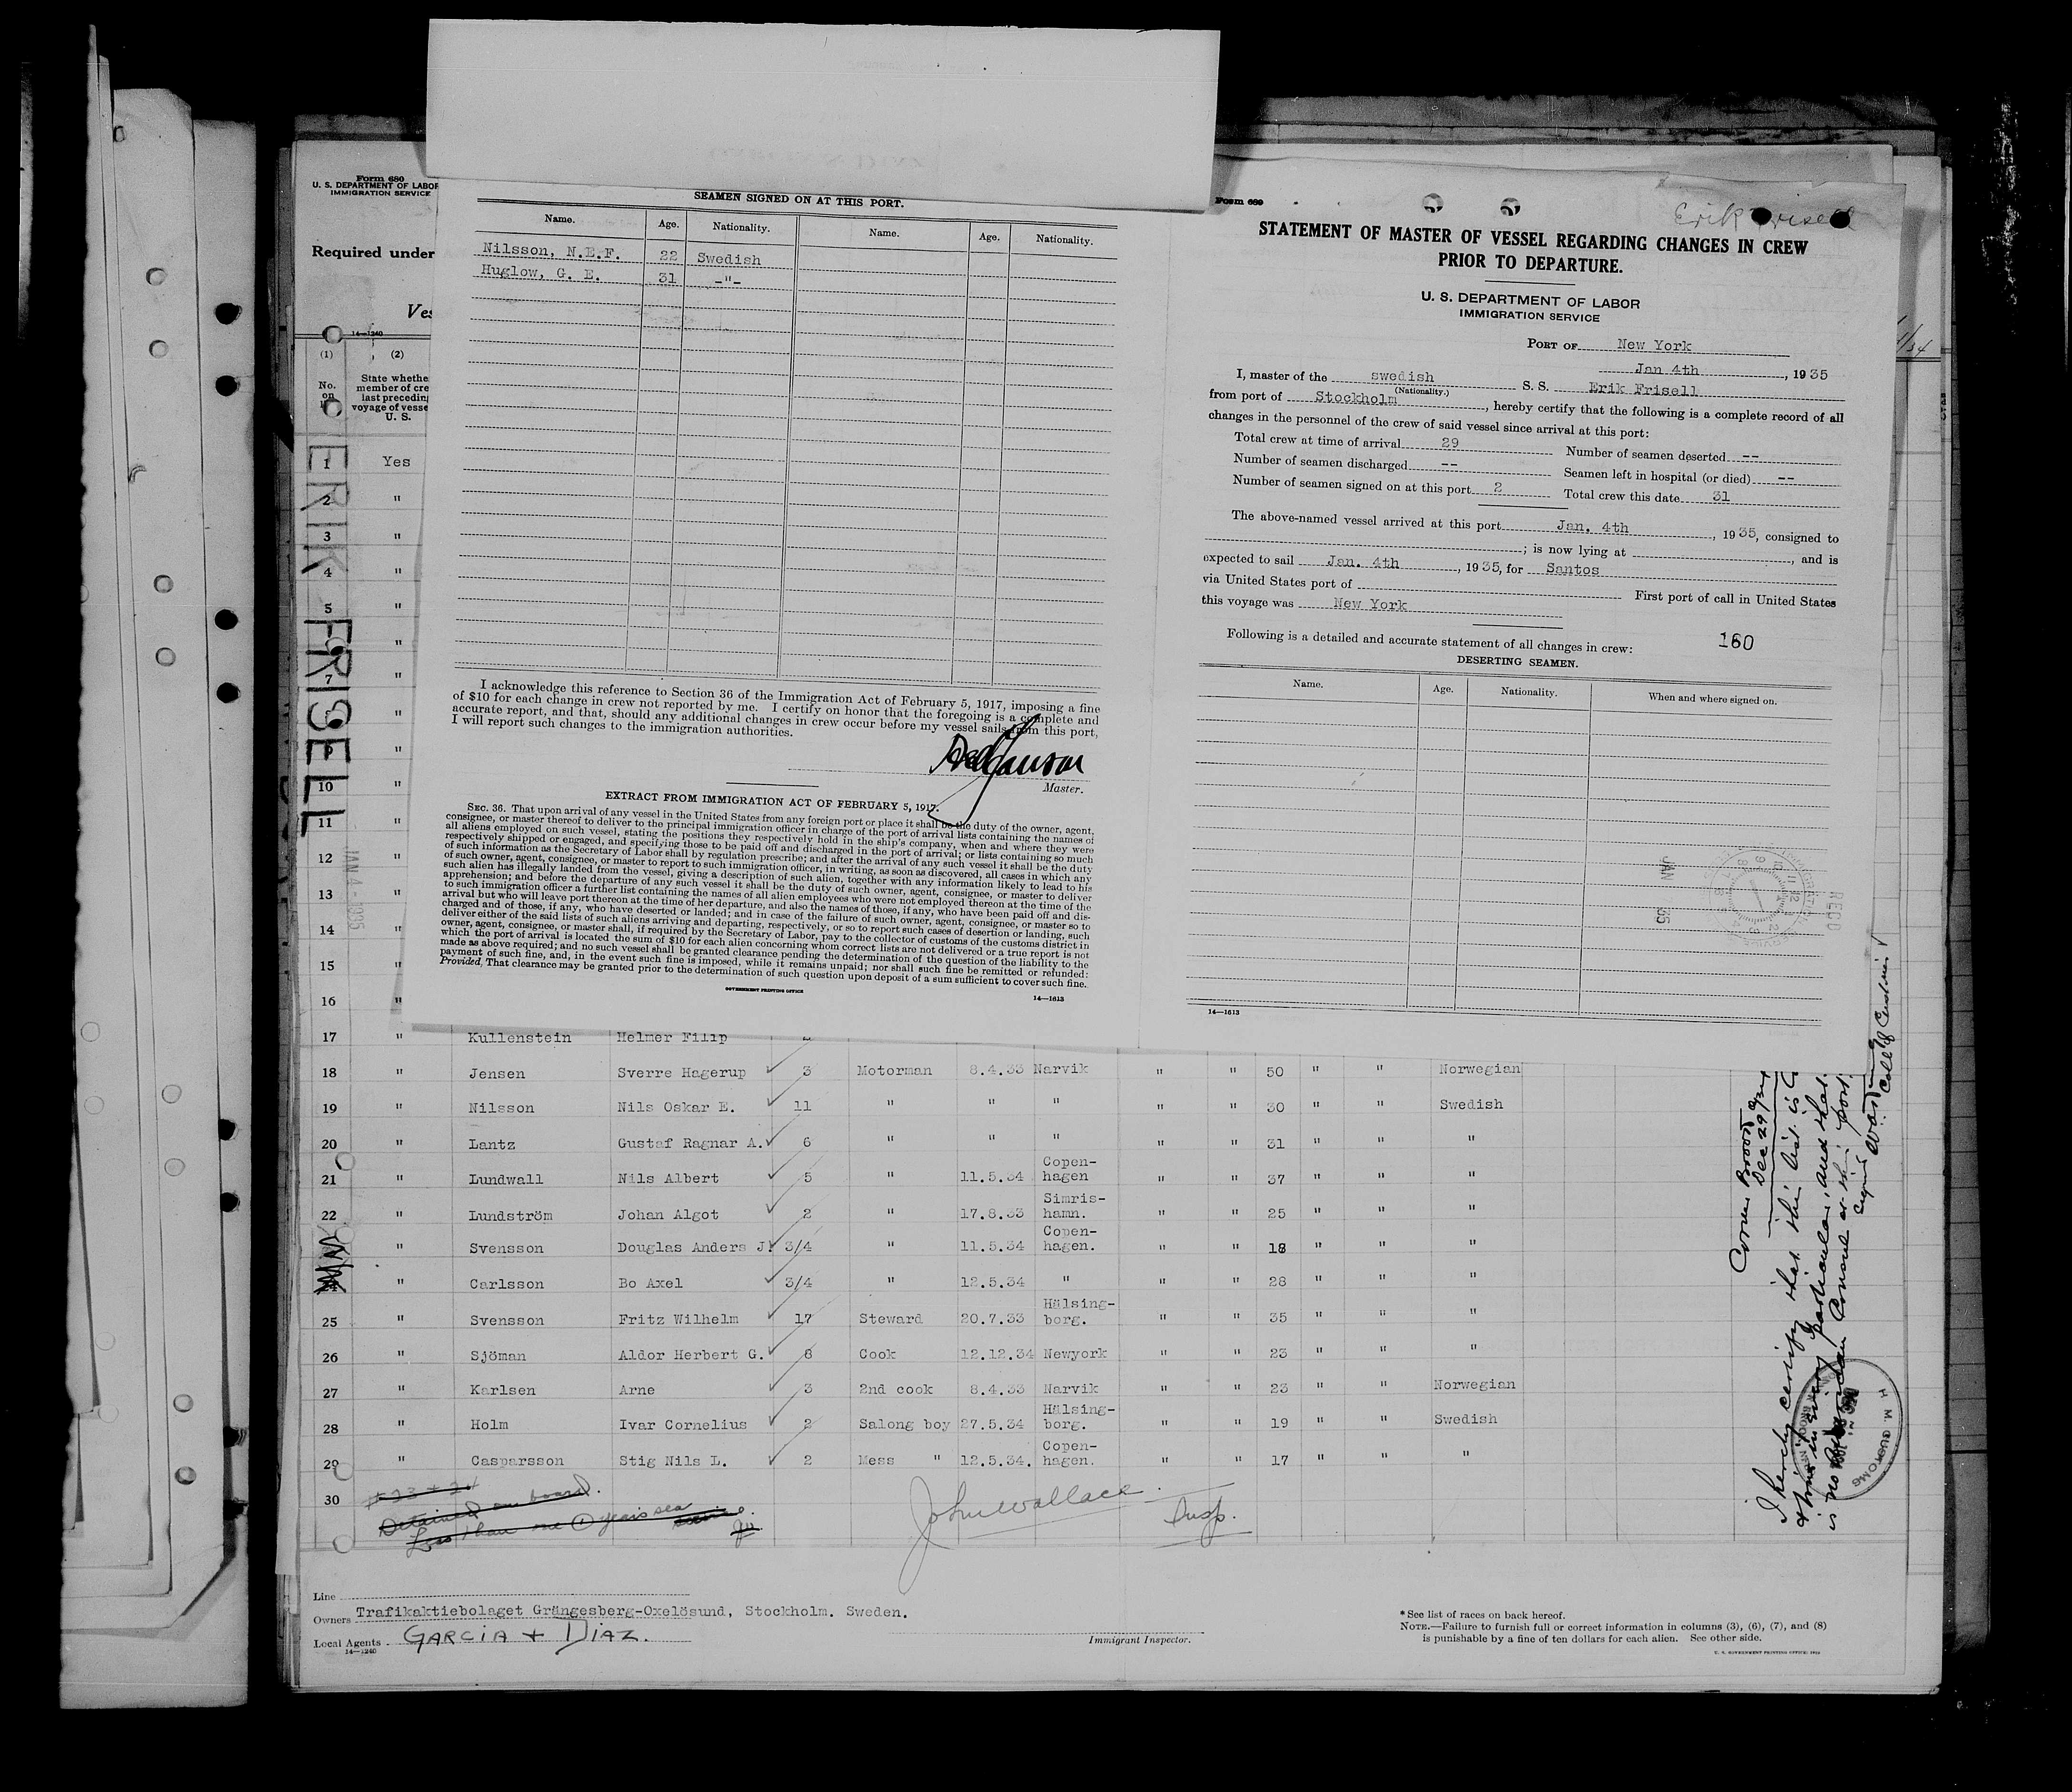 Form 680
U. S. DEPARTMENT OF LABOR
IMMIGRATION SERVICE
Required under
14—1240
(1) (2)
No. on
State whether
member of cre
last preceding
voyage of vesse
U. S.
ERIK FRISELL
JAN 4 - 1935
1 Yes
2 "
3 "
4 "
5 "
"
7 "
"
9 "
10 "
11 "
12 "
13 "
14 "
15 "
16 "
SEAMEN SIGNED ON AT THIS PORT.
Name. Age. Nationality. Name. Age. Nationality.
Nilsson, N.E.F. 22 Swedish
Huglow, G. E. 31 -"-
I acknowledge this reference to Section 36 of the Immigration Act of February 5, 1917, imposing a fine
of $10 for each change in crew not reported by me. I certify on honor that the foregoing is a complete and
accurate report, and that, should any additional changes in crew occur before my vessel sails from this port,
I will report such changes to the immigration authorities.
Master.
EXTRACT FROM IMMIGRATION ACT OF FEBRUARY 5, 1917.
SEC. 36. That upon arrival of any vessel in the United States from any foreign port or place it shall be the duty of the owner, agent,
consignee, or master thereof to deliver to the principal immigration officer in charge of the port of arrival lists containing the names of
all aliens employed on such vessel, stating the positions they respectively hold in the ship's company, when and where they were
respectively shipped or engaged, and specifying those to be paid off and discharged in the port of arrival; or lists containing so much
of such information as the Secretary of Labor shall by regulation prescribe; and after the arrival of any such vessel it shall be the duty
of such owner, agent, consignee, or master to report to such immigration officer, in writing, as soon as discovered, all cases in which any
such alien has illegally landed from the vessel, giving a description of such alien, together with any information likely to lead to his
apprehension; and before the departure of any such vessel it shall be the duty of such owner, agent, consignee, or master to deliver
to such immigration officer a further list containing the names of all alien employees who were not employed thereon at the time of the
arrival but who will leave port thereon at the time of her departure, and also the names of those, if any, who have been paid off and dis-
charged and of those, if any, who have deserted or landed; and in case of the failure of such owner, agent, consignee, or master so to
deliver either of the said lists of such aliens arriving and departing, respectively, or so to report such cases of desertion or landing, such
owner, agent, consignee, or master shall, if required by the Secretary of Labor, pay to the collector of customs of the customs district in
which the port of arrival is located the sum of $10 for each alien concerning whom correct lists are not delivered or a true report is not
made as above required; and no such vessel shall be granted clearance pending the determination of the question of the liability to the
payment of such fine, and, in the event such fine is imposed, while it remains unpaid; nor shall such fine be remitted or refunded:
Provided, That clearance may be granted prior to the determination of such question upon deposit of a sum sufficient to cover such fine.
GOVERNMENT PRINTING OFFICE 14—1613
Form 689
Erik Frisell
STATEMENT OF MASTER OF VESSEL REGARDING CHANGES IN CREW
PRIOR TO DEPARTURE.
U. S. DEPARTMENT OF LABOR
IMMIGRATION SERVICE
PORT OF New York
Jan 4th, 1935
I, master of the swedish S. S. Erik Frisell
(Nationality.)
from port of Stockholm, hereby certify that the following is a complete record of all
changes in the personnel of the crew of said vessel since arrival at this port:
Total crew at time of arrival 29 Number of seamen deserted --
Number of seamen discharged -- Seamen left in hospital (or died) --
Number of seamen signed on at this port 2 Total crew this date 31
The above-named vessel arrived at this port Jan. 4th, 1935, consigned to
; is now lying at , and is
expected to sail Jan. 4th, 1935, for Santos
via United States port of First port of call in United States
this voyage was New York
Following is a detailed and accurate statement of all changes in crew: 160
DESERTING SEAMEN.
Name. Age. Nationality. When and where signed on.
REC'D
JAN 35
14—1613
17 " Kullenstein Helmer Filip
18 " Jensen Sverre Hagerup 3 Motorman 8.4.33 Narvik " " 50 " " Norwegian
19 " Nilsson Nils Oskar E. 11 " " " " " 30 " " Swedish
20 " Lantz Gustaf Ragnar A. 6 " " " " " 31 " " "
21 " Lundwall Nils Albert 5 " 11.5.34 Copen-hagen " " 37 " " "
22 " Lundström Johan Algot 2 " 17.8.33 Simris-hamn. " " 25 " " "
" Svensson Douglas Anders J. 3/4 " 11.5.34 Copen-hagen. " " 18 " " "
" Carlsson Bo Axel 3/4 " 12.5.34 " " " 28 " " "
25 " Svensson Fritz Wilhelm 17 Steward 20.7.33 Hälsing-borg. " " 35 " " "
26 " Sjöman Aldor Herbert G. 8 Cook 12.12.34 Newyork " " 23 " " "
27 " Karlsen Arne 3 2nd cook 8.4.33 Narvik " " 23 " " Norwegian
28 " Holm Ivar Cornelius 2 Salong boy 27.5.34 Hälsing-borg. " " 19 " " Swedish
29 " Casparsson Stig Nils L. 2 Mess " 12.5.34. Copen-hagen. " " 17 " " "
30
Detained on board.
Less than one (1) years sea
John Wallace Insp.
I hereby certify that this list is
H. M. CUSTOMS
Line
Owners Trafikaktiebolaget Grängesberg-Oxelösund, Stockholm. Sweden.
Local Agents GARCIA + DIAZ.
14—1240
Immigrant Inspector.
* See list of races on back hereof.
NOTE.—Failure to furnish full or correct information in columns (3), (6), (7), and (8)
is punishable by a fine of ten dollars for each alien. See other side.
U. S. GOVERNMENT PRINTING OFFICE: